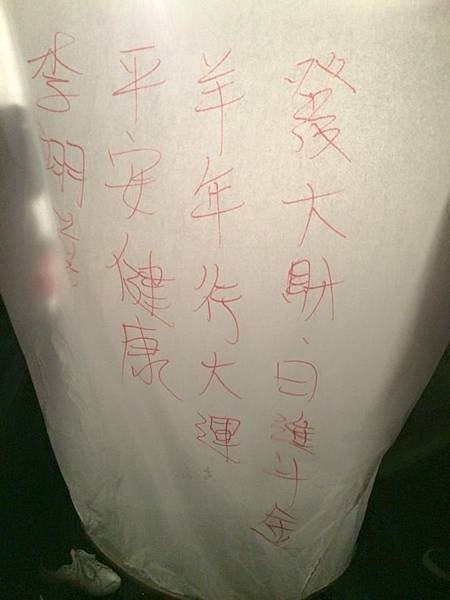 發大財、日進斗金
羊年行大運
平安健康
李